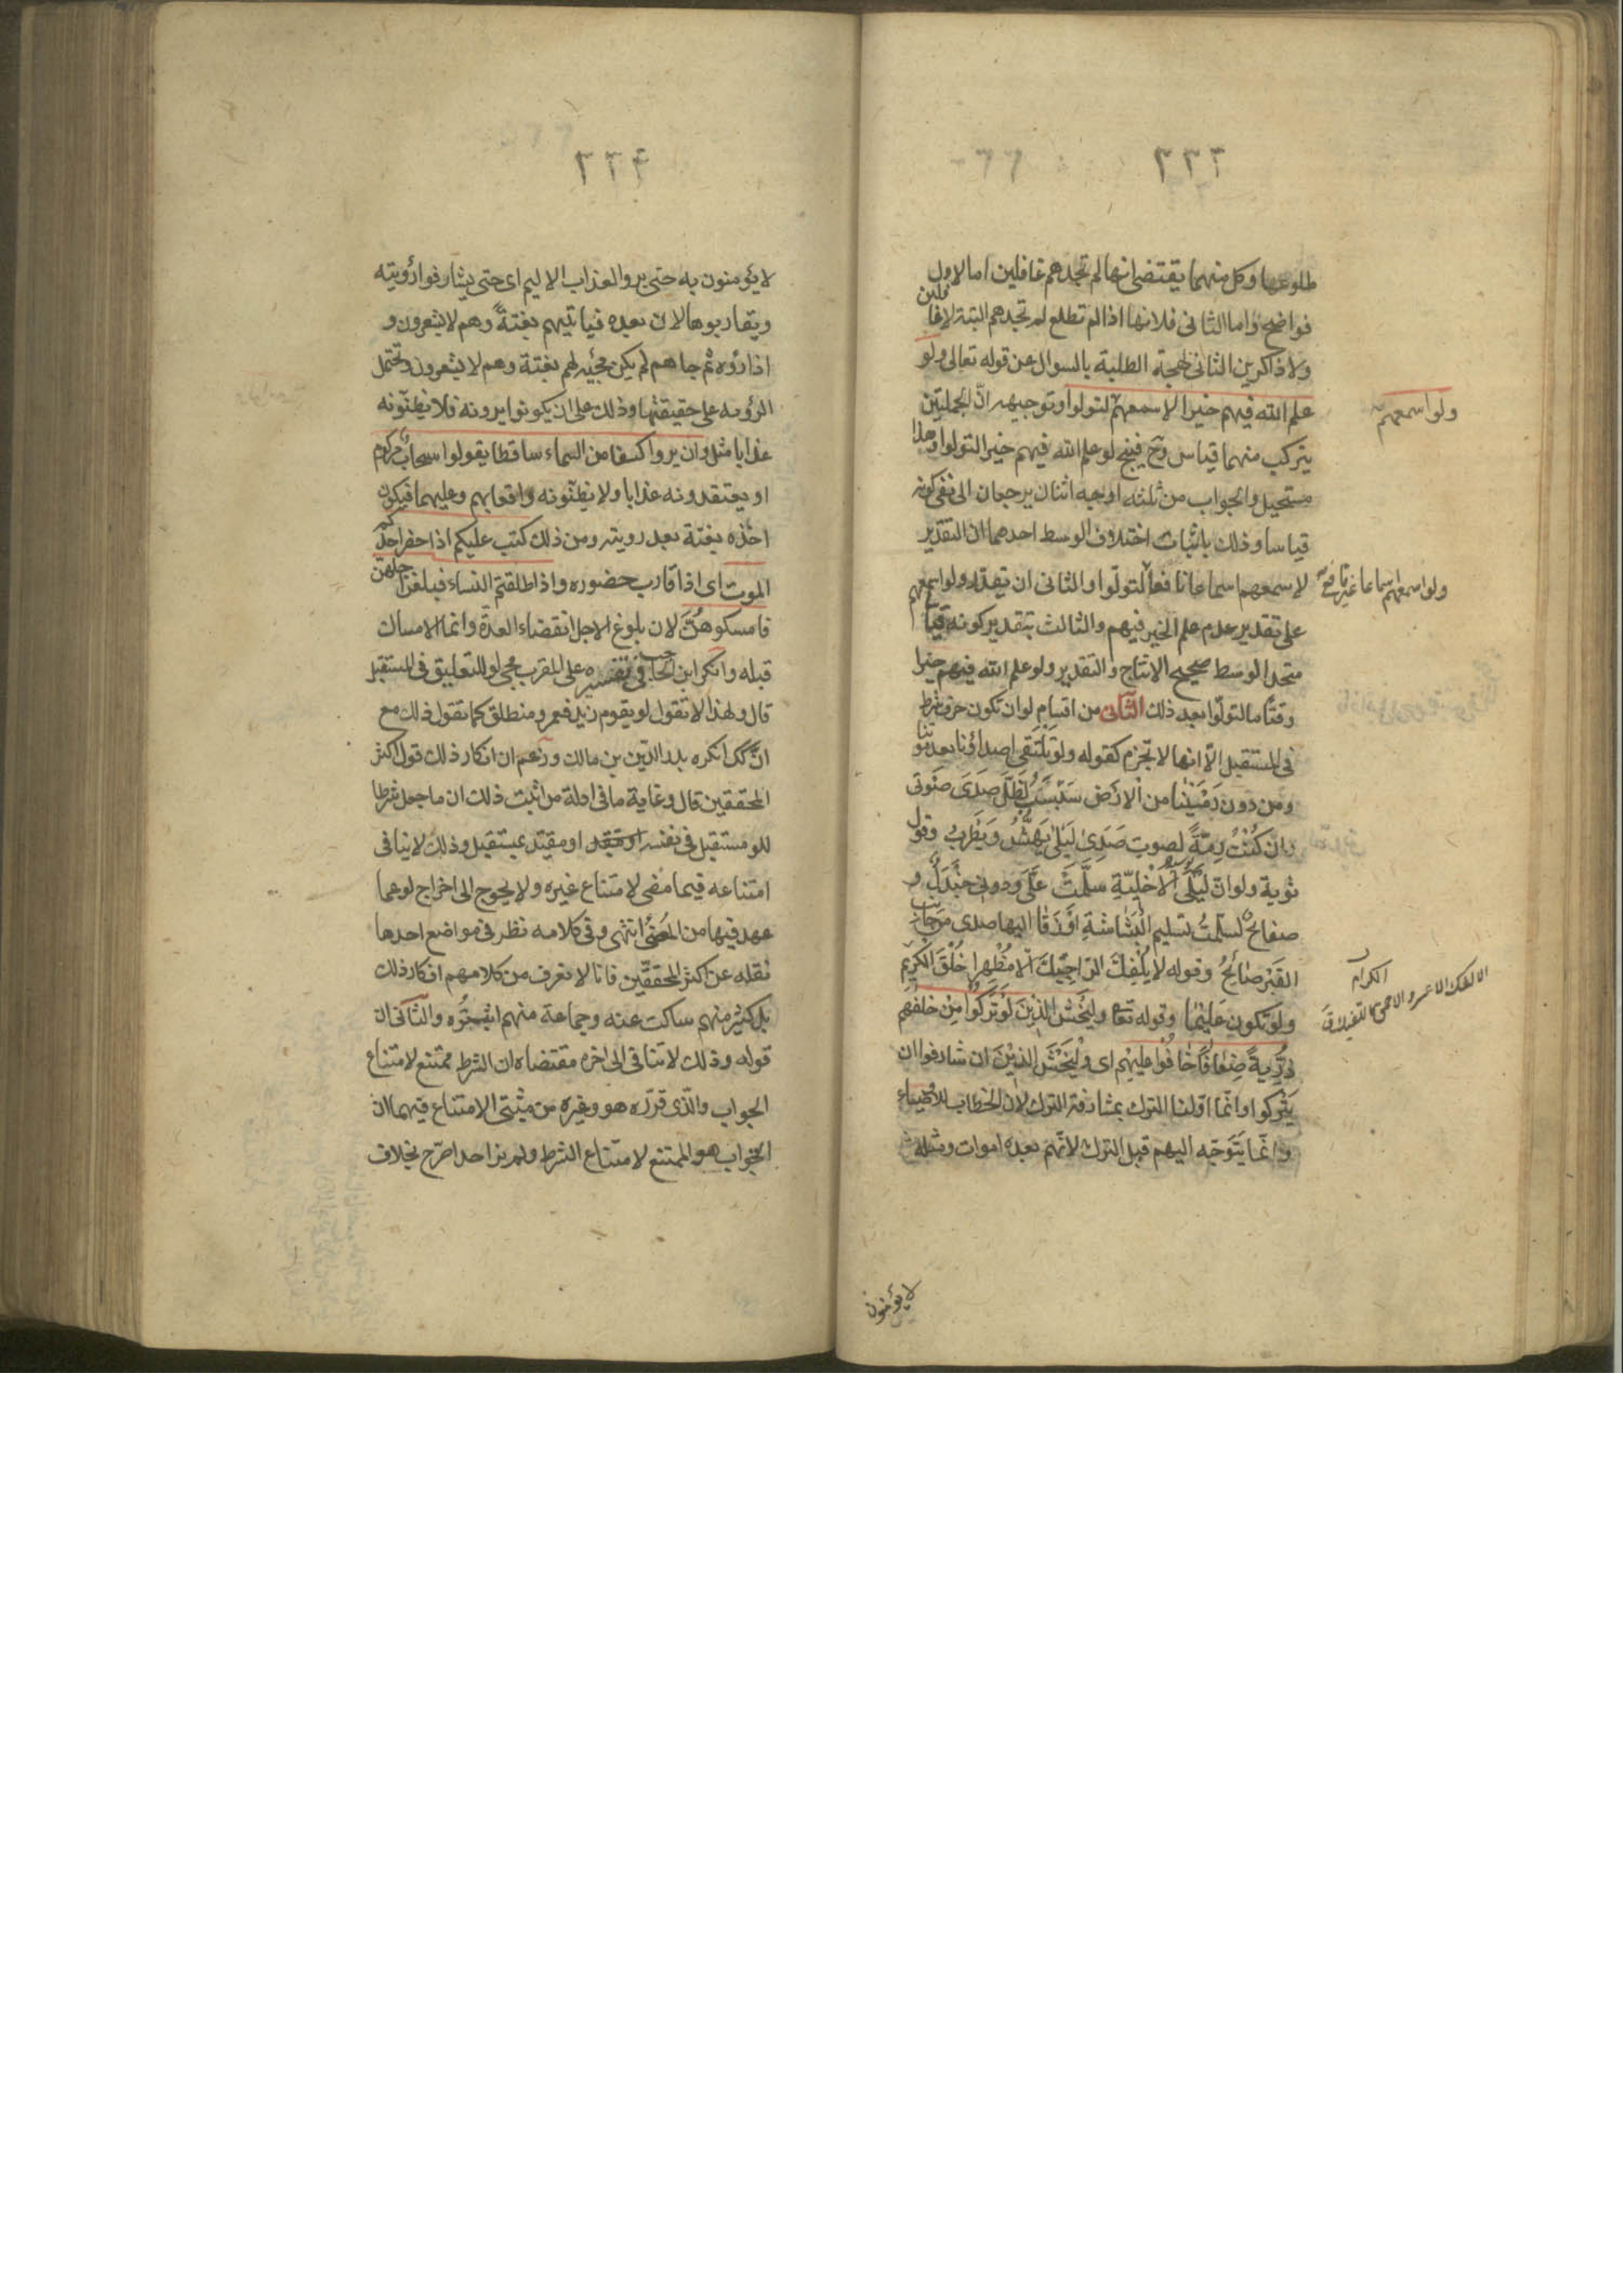 ٢٣٣
طلوعها وكل منهما يقتضى انها لم تجدهم غافلين اما الاول
فواضح واما الثانى فلانها اذا لم تطلع لم تجدهم البتة لا غافلين
ولا ذاكرين الثانى لهجت الطلبة بالسوال عن قوله تعالى ولو
علم الله فيهم خيرا لاسمعهم لتولوا وتوجيهه انّ الجملتين
ولو اسمعهم
يتركب منهما قياس وح فينتج لو علم الله فيهم خيرا لتولوا وهذا
مستحيل والجواب من ثلثه اوجه اثنان يرجعان الى نفى كونه
قياسا وذلك باثبات اختلاف الوسط احدهما ان التقدير
لاسمعهم سماعا نافعا لتولّوا والثانى ان تقدّر ولو اسمعهم
ولو اسمعهم اسماعا غير نافع
على تقدير عدم علم الخير فيهم والثالث بتقدير كونه قيا
متحد الوسط صحيح الانتاج والتقدير ولو علم الله فيهم خيرا
وقتًا ما لتولّوا بعد ذلك الثانى من اقسام لو ان تكون حرف شرط
فى المستقبل الّا انها لا تجزم كقوله ولو تلتقى اصداؤنا بعد موتنا
ومن دون رمسينا من الارض سبسب لظل صدى صوتى
وان كنت رمّةً لصوت صدى ليلى يهشّ ويطرب وقول
توبة ولو ان ليلى الاخيليّة سلّمت علىّ ودونى جندل و
صفائح لسلمت تسليم البشاشة او زقا اليها صدى من جانب
القبر صائح وقوله لا يلفك الراجيك الا مظهرا خلق الكريم
الكرام
ولو تكون عديما وقوله تعا وليخش الذين لو تركوا من خلفهم
ذرّيةً ضعافًا خافوا عليهم اى وليخش الذين ان شارفوا ان
يتركوا وانّما اوّلنا الترك بمشارفة الترك لان الخطاب للاوصياء
وانّما يتوجّه اليهم قبل الترك لانّهم بعده اموات ومثله
لا يؤمنون
٢٣٤
لا يؤمنون به حتى يروا العذاب الاليم اى حتى يشارفوا رؤيته
ويقاربوها لان بعده فياتيهم بغتةً وهم لا يشعرون و
اذا رؤه ثم جاهم لم يكن مجيئه لهم بغتة وهم لا يشعرون وتحتمل
الرؤيه على حقيقتها وذلك على ان يكونوا يرونه فلا يظنّونه
عذابا مثل وان يروا كسفا من السماء ساقطا يقولوا سحاب مركوم
او يعتقدونه عذابا ولا يظنّونه واقعا بهم وعليهما فيكون
اخذه بغتة بعد رويته ومن ذلك كتب عليكم اذا حضر احدكم
الموت اى اذا قارب حضوره واذا طلقتم النساء فبلغن اجلهن
فامسكوهنّ لان بلوغ الاجل انقضاء العدة وانما الامساك
قبله وانكر ابن الحاجب فى نقده على المقرب مجى لو للتعليق فى المستقبل
قال ولهذا لا تقول لو يقوم زيد فعمرو منطلق كما تقول ذلك مع
ان كك انكره بدر الدّين بن مالك وزعم ان انكار ذلك قول اكثر
المحققين قال وغاية ما فى ادلة من اثبت ذلك ان ما جعل شرطا
للو مستقبل فى نفسه او مقيّد بمستقبل وذلك لا ينافى
امتناعه فيما مضى لامتناع غيره ولا يحوج الى اخراج لو عما
عهد فيها من المضى انتهى وفى كلامه نظر فى مواضع احدها
نقله عن اكثر المحققين فانا لا نعرف من كلامهم انكار ذلك
بل كثير منهم ساكت عنه وجماعة منهم اثبتوه والثانى ان
قوله وذلك لا ينافى الى اخره مقتضاه ان الشرط ممتنع لامتناع
الجواب والّذى قرّره هو وغيره من مثبتى الامتناع فيهما ان
الجواب هو الممتنع لامتناع الشرط ولم نر احدا صرح بخلاف